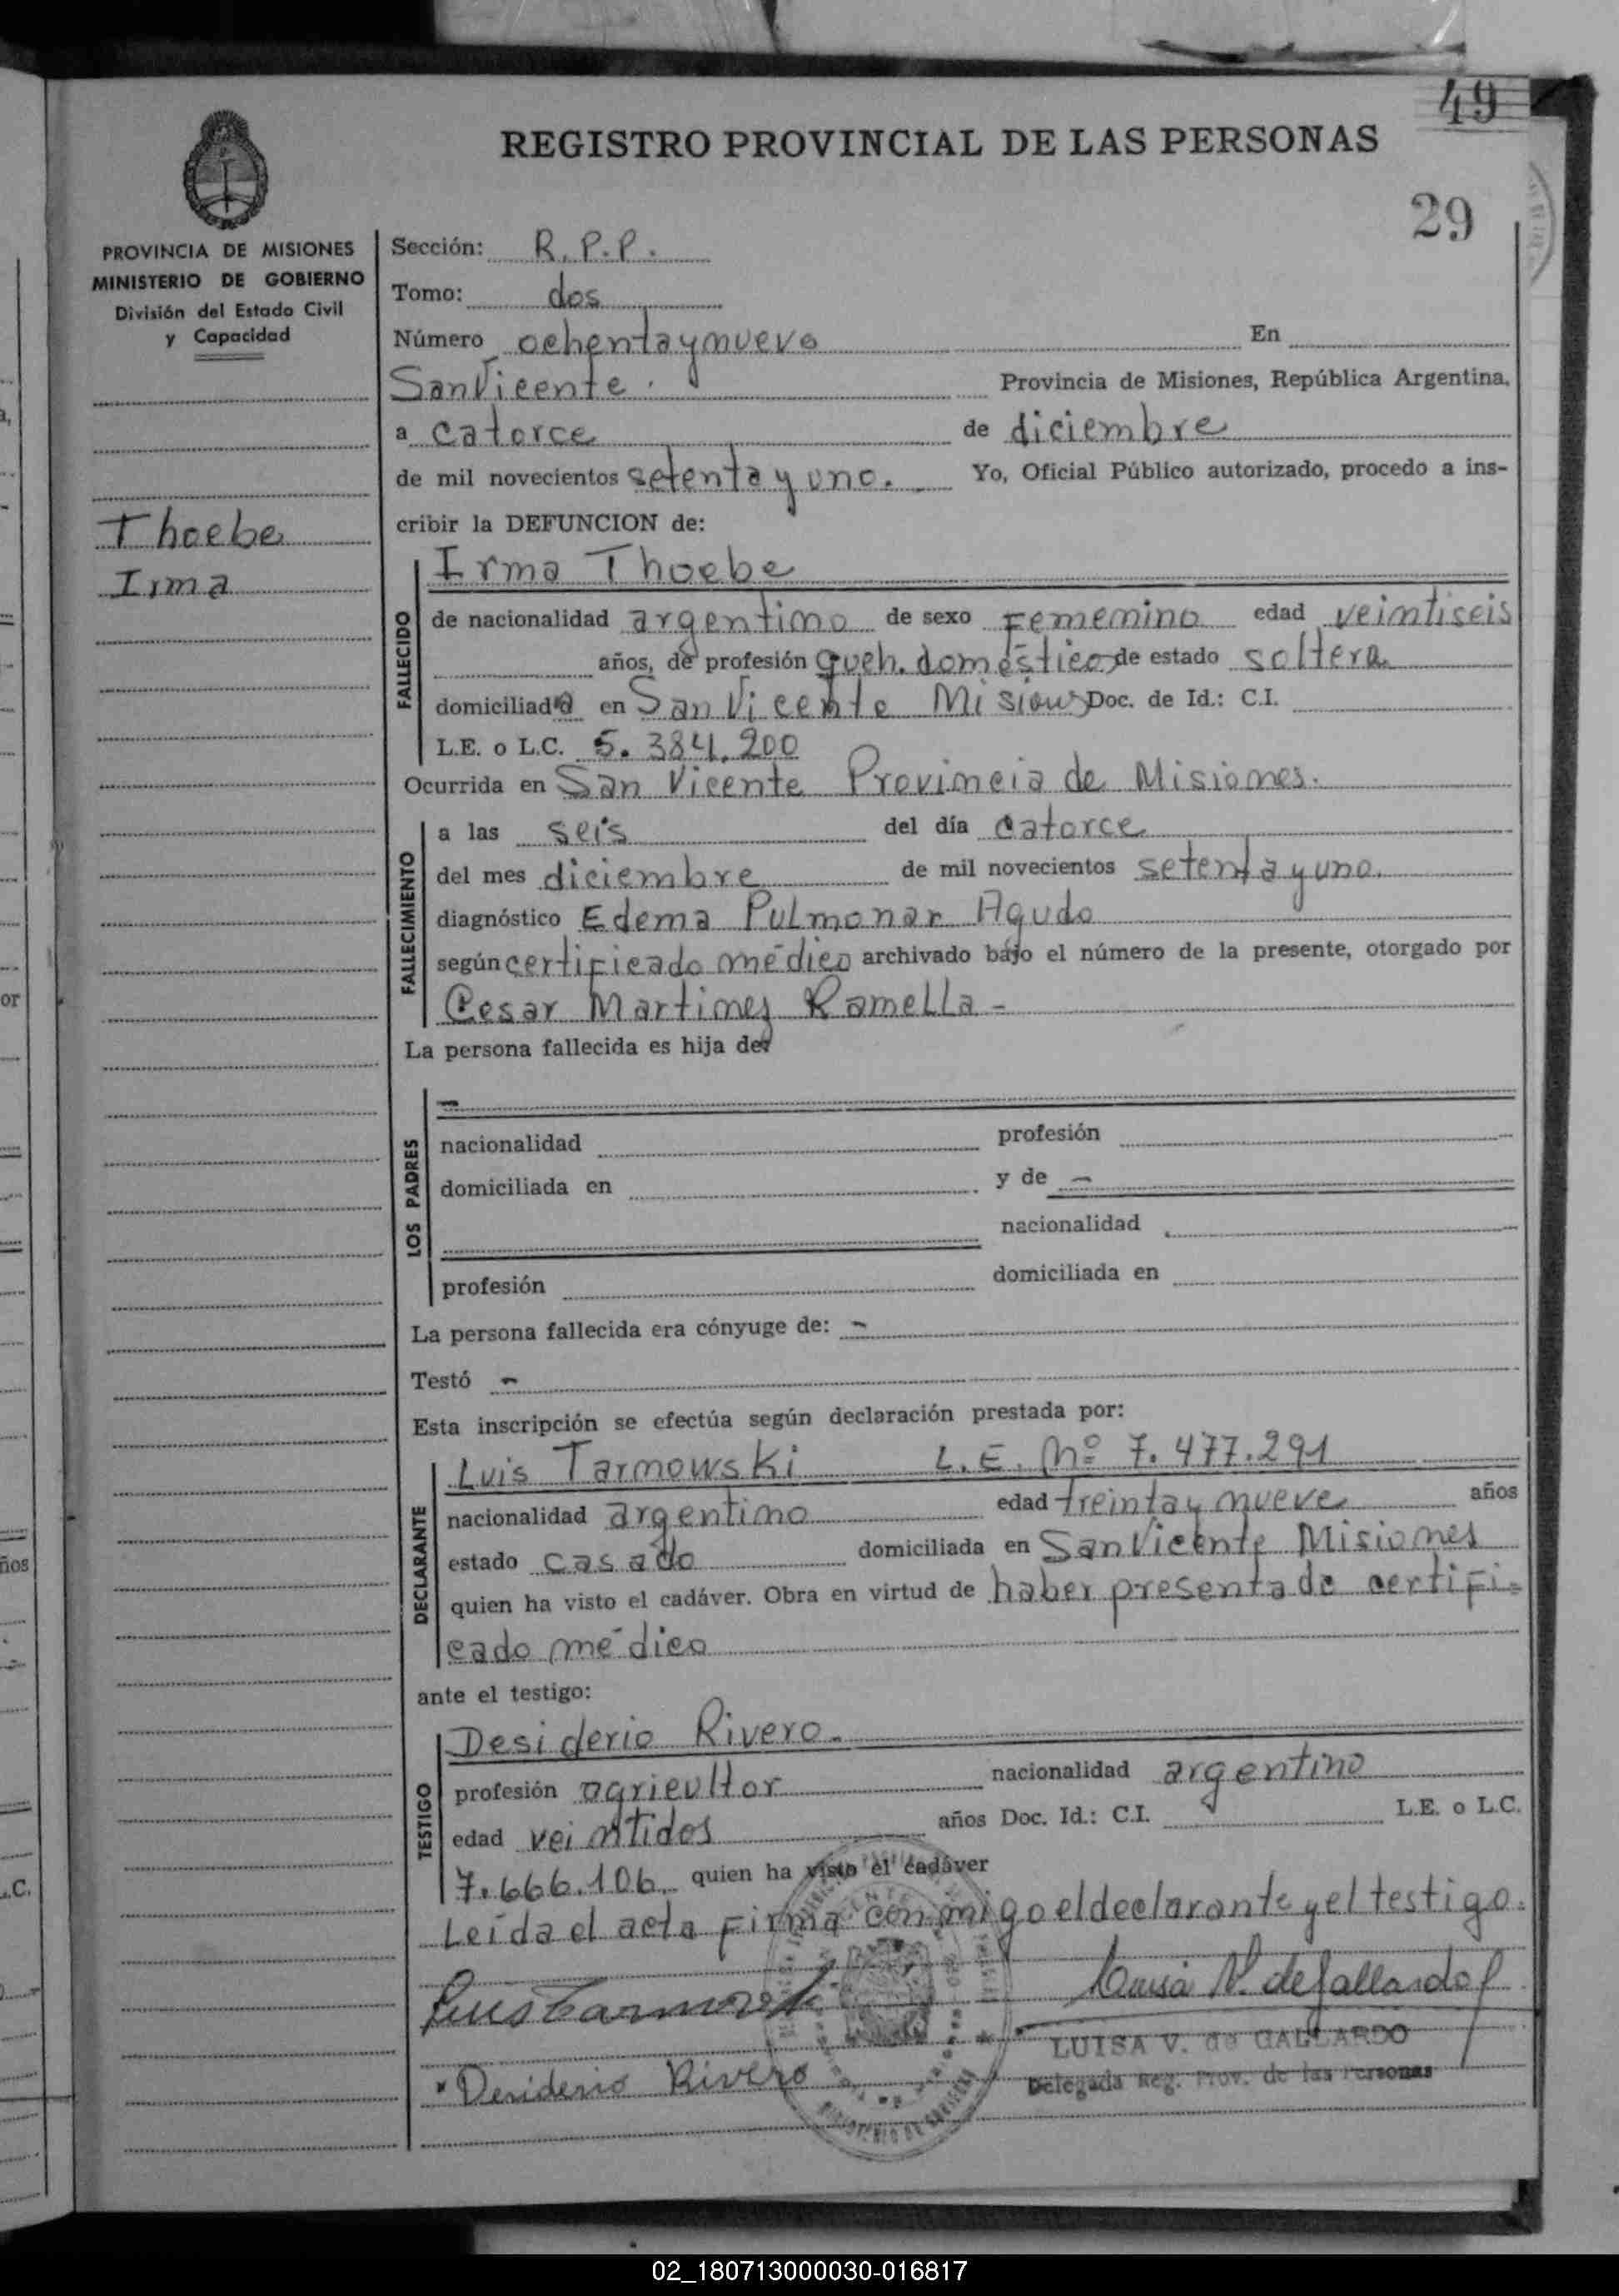 49
REGISTRO PROVINCIAL DE LAS PERSONAS
29
PROVINCIA DE MISIONES
MINISTERIO DE GOBIERNO
División del Estado Civil
y Capacidad
Thoebe
Irma
Sección: R.P.P.
Tomo: dos
Número ochenta y nueve En
San Vicente. Provincia de Misiones, República Argentina,
a catorce de diciembre
de mil novecientos setenta y uno. Yo, Oficial Público autorizado, procedo a ins-
cribir la DEFUNCION de:
FALLECIDO
Irma Thoebe
de nacionalidad argentino de sexo Femenino edad veintiseis
años, de profesión queh. domésticos de estado soltera
domiciliada en San Vicente Misiones Doc. de Id.: C.I.
L.E. o L.C. 5.384.200
Ocurrida en San Vicente Provincia de Misiones.
FALLECIMIENTO
a las seis del día catorce
del mes diciembre de mil novecientos setenta y uno.
diagnóstico Edema Pulmonar Agudo
según certificado médico archivado bajo el número de la presente, otorgado por
Cesar Martinez Ramella -
La persona fallecida es hija de:
LOS PADRES
-
nacionalidad profesión
domiciliada en y de -
nacionalidad
profesión domiciliada en
La persona fallecida era cónyuge de: -
Testó -
Esta inscripción se efectúa según declaración prestada por:
DECLARANTE
Luis Tarnowski L.E. Nº 7.477.291
nacionalidad argentino edad treinta y nueve años
estado casado domiciliada en San Vicente Misiones
quien ha visto el cadáver. Obra en virtud de haber presentado certifi-
cado médico
ante el testigo:
TESTIGO
Desiderio Rivero.
profesión agricultor nacionalidad argentino
edad veintidos años Doc. Id.: C.I. L.E. o L.C.
7.666.106 quien ha visto el cadáver
Leída el acta Firma conmigo el declarante y el testigo.
Luis Tarnowski
Luisa V. de Gallardo
LUISA V. de GALLARDO
Delegada Reg. Prov. de las Personas
Desiderio Rivero
02_180713000030-016817